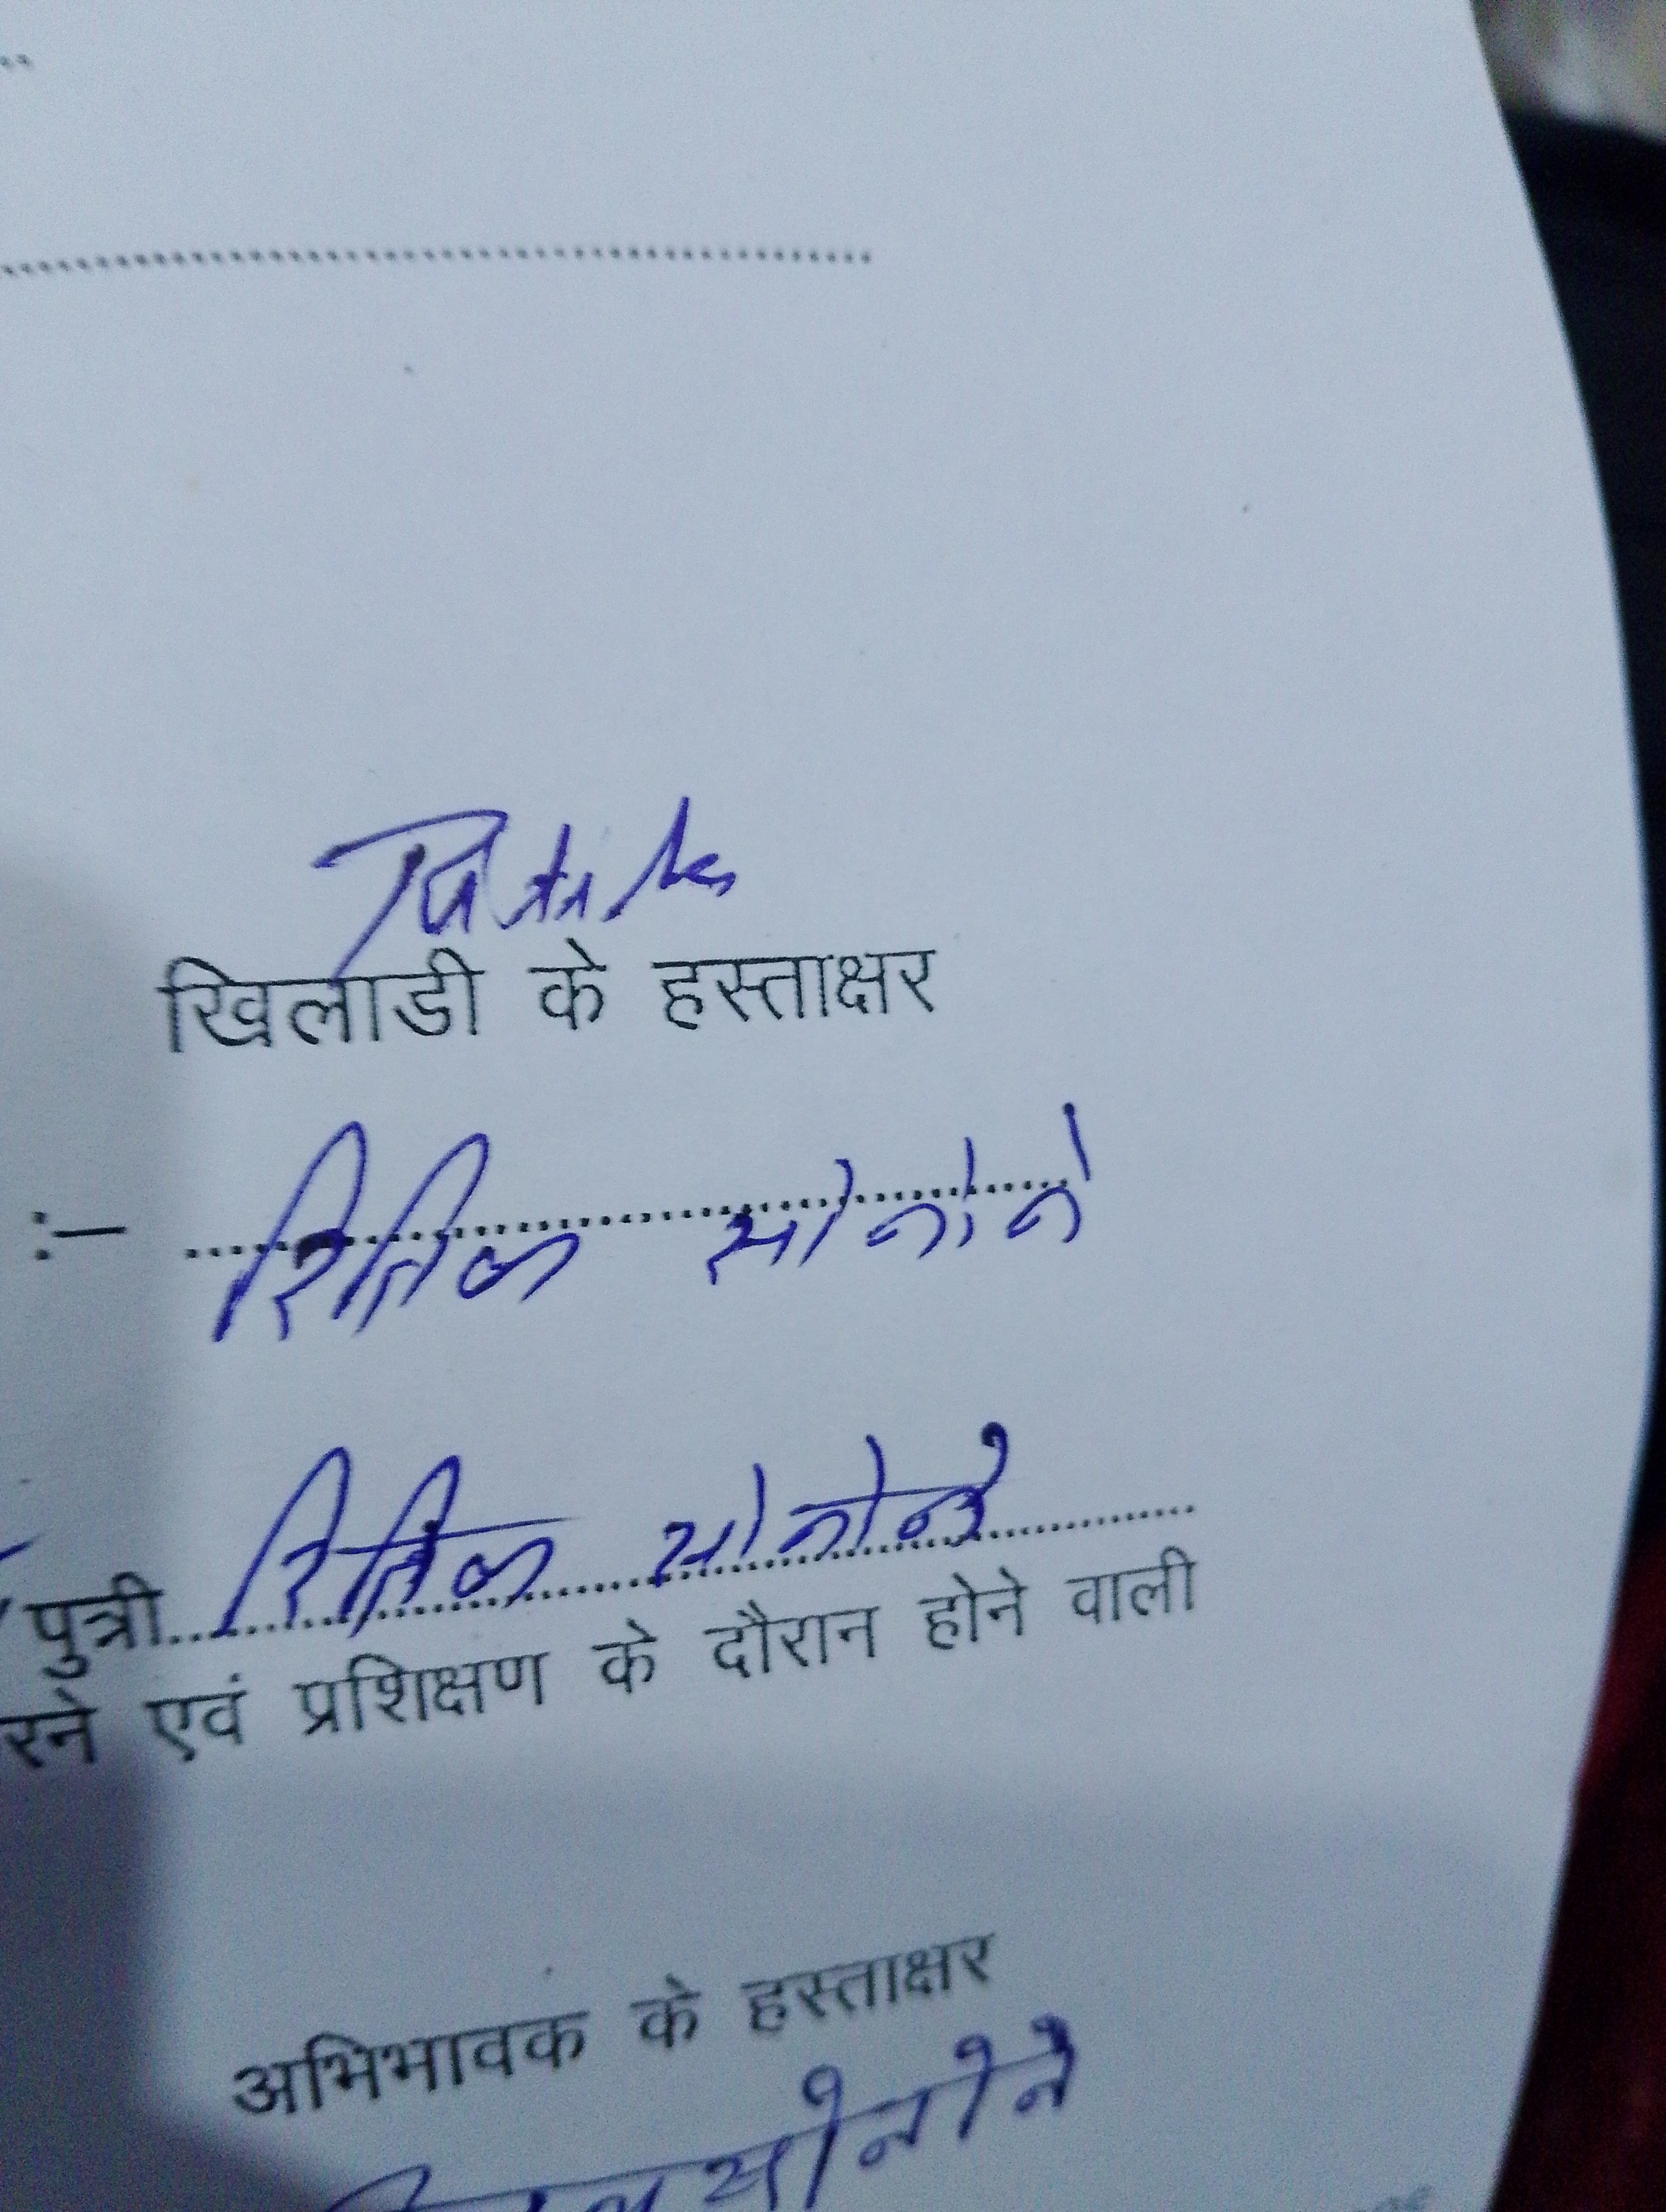 खिलाडी के हस्ताक्षर
:– रितिक सोनोने
पुत्री रितिक सोनोने
रने एवं प्रशिक्षण के दौरान होने वाली
अभिभावक के हस्ताक्षर
सोनोने